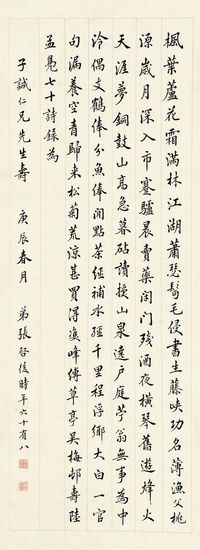 楓葉蘆花霜滿林江湖蕭瑟鬂毛侵書生藤峽功名薄漁父桃
源歲月深入市蹇驢晨賣藥閉門殘酒夜橫琴舊遊烽火
天涯夢銅鼓山高急暮砧讀授山泉遶戶庭芋翁無事為中
泠偶支鶴俸分魚俸閒點茶經補水經千里程浮鄉大白一官
句漏養空青歸來松菊荒涼甚買得遠峰傳草亭吳梅邨壽陸
孟鳧七十詩錄為
子誠仁兄先生壽
庚辰春月
弟張啓後時年六十有八